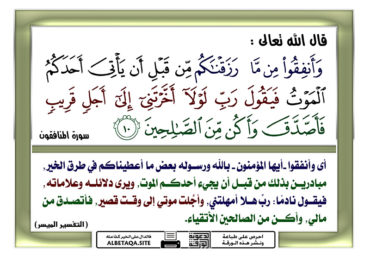 قال الله تعالى :
وَأَنفِقُوا۟ مِن مَّا رَزَقْنَـٰكُم مِّن قَبْلِ أَن يَأْتِىَ أَحَدَكُمُ
ٱلْمَوْتُ فَيَقُولَ رَبِّ لَوْلَآ أَخَّرْتَنِىٓ إِلَىٰٓ أَجَلٍ قَرِيبٍ
فَأَصَّدَّقَ وَأَكُن مِّنَ ٱلصَّـٰلِحِينَ ١٠
سورة المنافقون
أى وأنفقوا ـ أيها المؤمنون ـ بالله ورسوله بعض ما أعطيناكم في طرق الخير,
مبادرين بذلك من قبل أن يجيء أحدكم الموت, ويرى دلائله وعلاماته,
فيقول نادمًا: ربِّ هلا أمهلتني, وأجَّلت موتي إلى وقت قصير, فأتصدق من
مالي, وأكن من الصالحين الأتقياء.
( التفسير الميسر )
احرص على طباعة
ونشر هذه الورقة
ALBETAQA.SITE